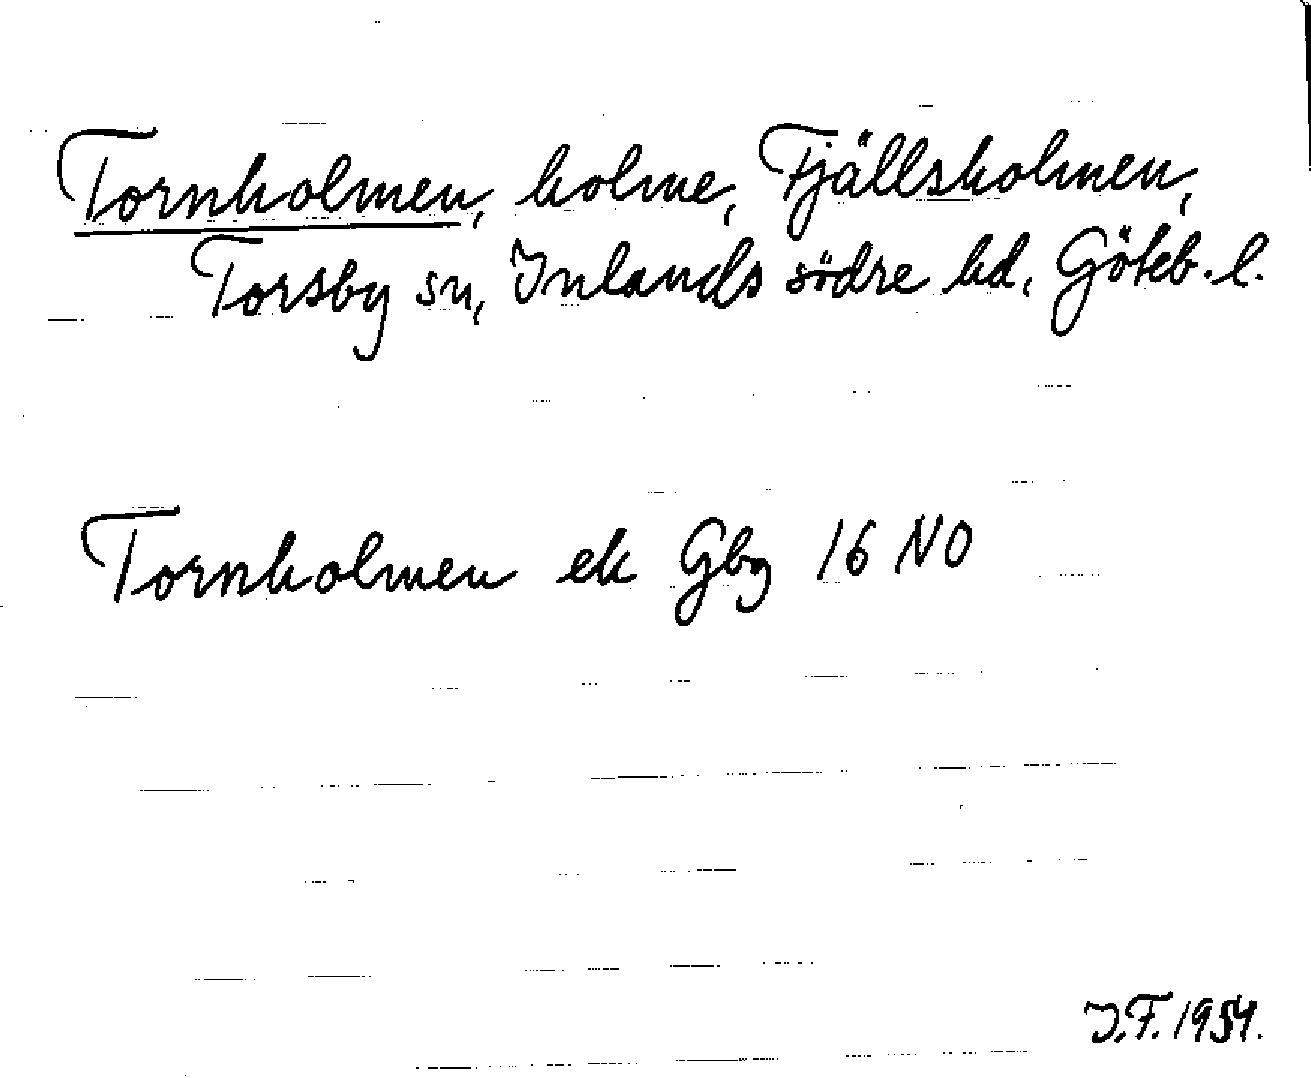 Tornholmen, holme, Fjällsholmen,
Torsby sn, Inlands södre hd, Göteb. l.
Tornholmen ek Gbg 16 NO
J.F. 1954.